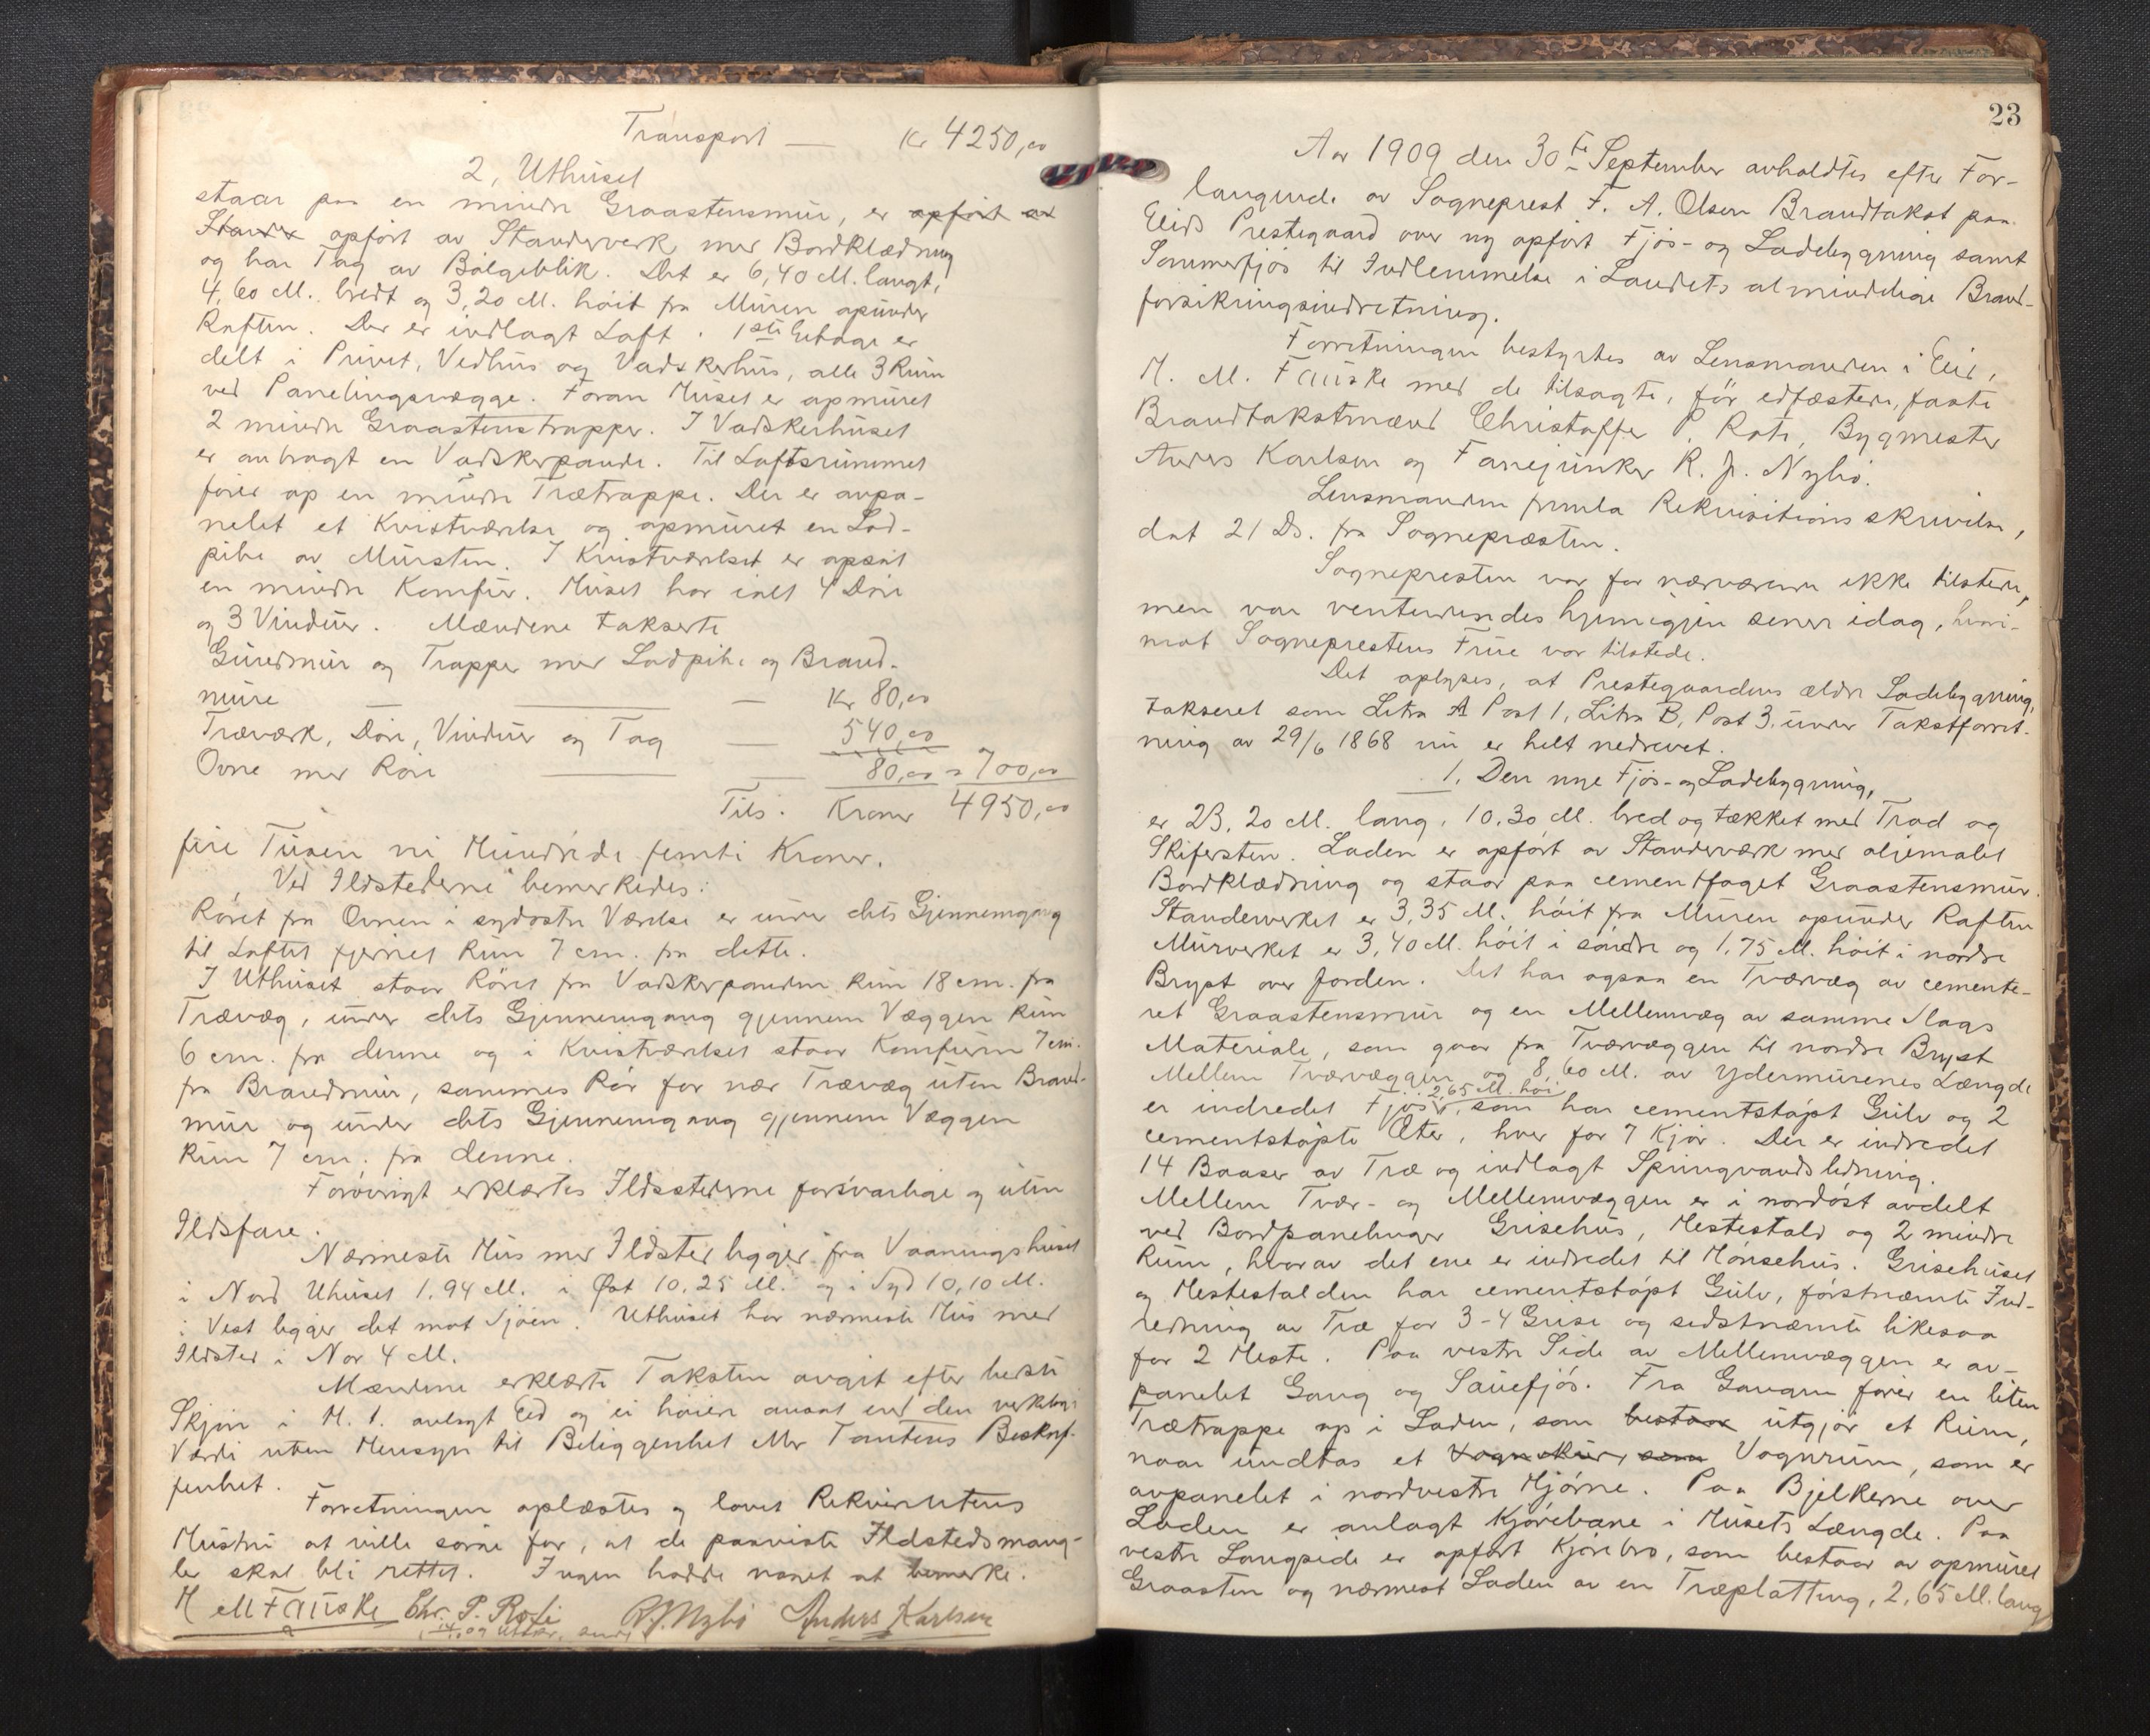 Transport — Kr 4250,00
2, Uthuset
staar paa en mindre Graastensmur, er opført av
Stander opført av Standerverk med Bordklædning
og har Tag av Bølgeblik. Det er 6,40 M. langt,
4,60 M. bredt og 3,20 M. høit fra Muren opunder
Raften. Der er indlagt Loft. 1ste Etage er
delt i Privet, Vedhus og Vadskerhus, alle 3 Rum
ved Panelingsvægge. Foran Huset er opmuret
2 mindre Graastenstrapper. I Vadskerhuset
er anbragt en Vadskerpande. Til Loftsrummet
fører op en mindre Trætrappe. Der er avpa-
nelet et Kvistværelse og opmuret en Lod-
pibe av Mursten. I Kvistværelset er opsat
en mindre Komfur. Huset har ialt 4 Døre
og 3 Vinduer. Mændene takserte
Gurdmur og Trapper med Lodpibe og Brand-
mure — Kr 80,00
Træværk, Døre, Vinduer og Tag — 540,00
Ovne med Rør — 80,00 = 700,00
Tils. Kroner 4950,00
fire Tusen ni Hundrede femti Kroner.
Ved Ildstederne bemerkedes:
Røret fra Ovnen i sydøstre Værelse er under dets Gjennemgang
til Loftet fjernet kun 7 cm. fra dette.
I Uthuset staar Røret fra Vadskerpanden kun 18 cm. fra
Trævæg, under dets Gjennemgang gjennem Væggen kun
6 cm. fra denne og i Kvistværelset staar Komfuren 7 cm.
fra Brandmur, sammes Rør for nær Trævæg uten Brand-
mur og under dets Gjennemgang gjennem Væggen
kun 7 cm. fra denne.
Forøvrigt erklærtes Ildstederne forsvarlige og uten
Ildsfare.
Nærmeste Hus med Ildsted ligger fra Vaaningshuset
i Nord Uhuset 1,94 M. i Øst 10,25 M. og i Syd 10,10 M.
i Vest ligger det mot Sjøen. Uthuset har nærmeste Hus med
Ildsted i Nor 4 M.
Mændene erklærte Taksten avgit efter bedste
Skjøn i H. t. avlagt Ed og ei høiere ansat end den virkelige
Værdi uten Hensyn til Beliggenhet eller Tomtens Beskaf-
fenhet.
Forretningen oplæstes og lovet Rekvirentens
Hustru at ville sørge for, at de paaviste Ildstedsmang-
ler skal bli rettet. Ingen hadde noget at bemerke.
H M Fauske Chr. P. Rote R. J. Nybø Anders Karlsen
23
Aar 1909 den 30te September avholdtes efter For-
langende av Sogneprest F. A. Olsen Brandtakst paa
Eids Prestegaard over ny opført Fjøs- og Ladebygning samt
Sommerfjøs til Indlemmelse i Landets almindelige Brand-
forsikringsindretning.
Forretningen bestyrtes av Lensmanden i Eid,
H. M. Fauske med de tilsagte, før edfæstede, faste
Brandtakstmænd Christoffer P. Rote, Bygmester
Anders Karlsen og Fanejunker R. J. Nybø.
Lensmanden fremla Rekvisitionsskrivelse,
dat 21 Ds. fra Sognepræsten.
Sognepresten var for nærværende ikke tilstede,
men var ventendes hjemigjen senere idag, hvori-
mot Sogneprestens Frue var tilstede.
Det oplyses, at Prestegaardens ældre Ladebygning,
takseret som Litra A Post 1, Litra B, Post 3. under Takstforret-
ning av 29/6 1868 nu er helt nedrevet.
1. Den nye Fjøs- og Ladebygning,
er 23,20 M. lang, 10,30 M. bred og tækket med Trod og
Skifersten. Laden er opført av Standerværk med oljemalet
Bordklædning og staar paa cementfuget Graastensmur.
Standerverket er 3,35 M. høit fra Muren opunder Raften
Murverket er 3,40 M. høit i søndre og 1,75 M. høit i nordre
Bryst over Jorden. Det har ogsaa en Tværvæg av cemente-
ret Graastensmur og en Mellemvæg av samme Slags
Materiale, som gaar fra Tværvæggen til nordre Bryst
Mellem Tværvæggen og 8,60 M. av Ydermurenes Længde
er indredet Fjøs, 2,65 M. høi, som har cementstøpt Gulv og 2
cementstøpte Æter, hver for 7 Kjør. Der er indredet
14 Baaser av Træ og indlagt Springvandsledning.
Mellem Tvær- og Mellemvæggen er i nordøst avdelt
ved Bordpanelinger Grisehus, Hestestald og 2 mindre
Rum, hvorav det ene er indredet til Hønsehus. Grisehuset
og Hestestalden har cementstøpt Gulv, førstnævnte Ind-
redning av Træ for 3-4 Grise og sidstnævnte likesaa
for 2 Heste. Paa vestre Side av Mellemvæggen er av-
panelet Gang og Sauefjøs. Fra Gangen fører en liten
Trætrappe op i Laden, som bestaar utgjør et Rum,
naar undtas et Vognskur, som Vognrum, som er
avpanelet i nordvestre Hjørne. Paa Bjelkerne over
Laden er anlagt Kjørebane i Husets Længde. Paa
vestre Langside er opført Kjørebro, som bestaar av opmuret
Graasten og nærmest Laden av en Træplatting, 2,65 M. lang